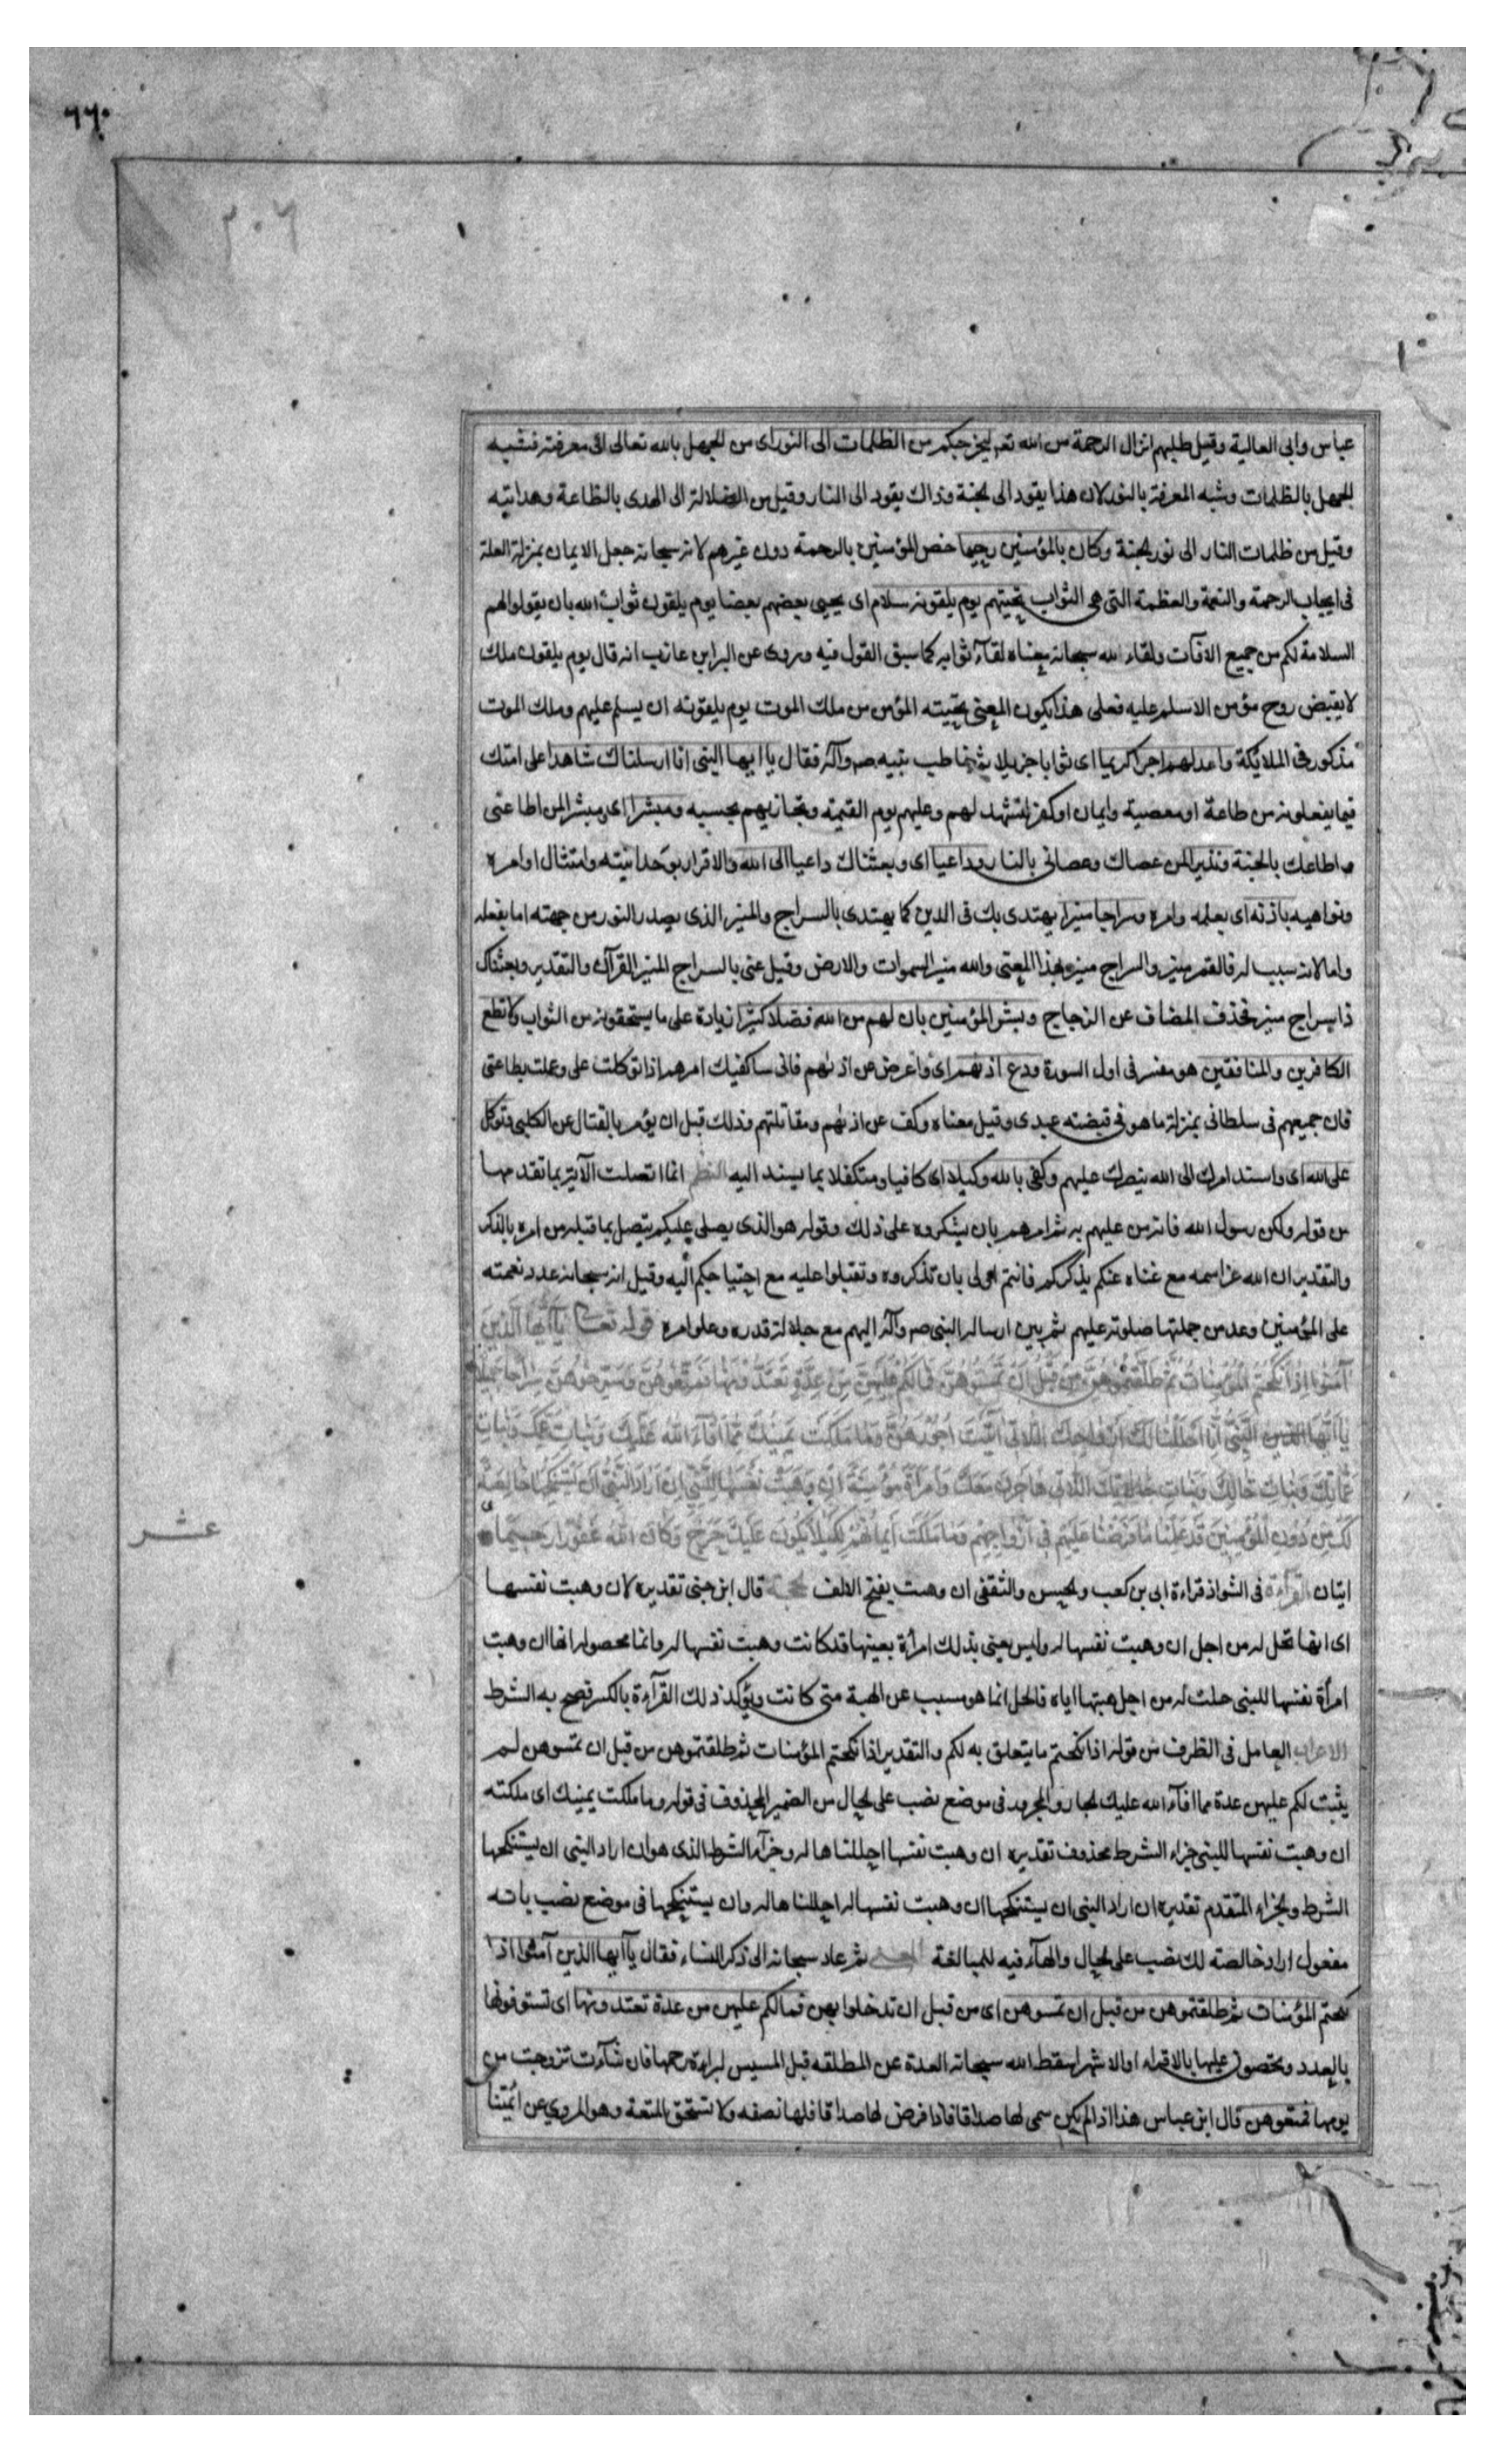 ٦٦٠
٣٠٦
عباس وابى العالية وقيل طلبهم انزال الرحمة من الله تعم ليخرجكم من الظلمات الى النور اى من الجهل بالله تعالى الى معرفته فشبه
الجهل بالظلمات وشبه المعرفة بالنور لان هذا يقود الى الجنة وذاك يقود الى النار وقيل من الضلالة الى الهدى بالطاعة وهدايته
وقيل من ظلمات النار الى نور الجنة وكان بالمؤمنين رحيما خص المؤمنين بالرحمة دون غيرهم لانه سبحانه جعل الايمان بمنزلة العلة
فى ايجاب الرحمة والنعمة والعظمة التى هى الثواب تحيتهم يوم يلقونه سلام اى يحيى بعضهم بعضا يوم يلقون ثواب الله بان يقولوا لهم
السلامة لكم من جميع الافات ولقاء الله سبحانه معناه لقآء ثوابه كما سبق القول فيه وروى عن البراء بن عازب انه قال يوم يلقون ملك
لا يقبض روح مؤمن الا سلم عليه فعلى هذا يكون المعنى تحيته المؤمن من ملك الموت يوم يلقونه ان يسلم عليهم وملك الموت
مذكور فى الملائكة واعد لهم اجرا كريما اى ثوابا جزيلا ثم خاطب نبيه ص وآله فقال يا ايها النبى انا ارسلناك شاهدا على امتك
فيما يفعلونه من طاعة او معصية وايمان او كفر لتشهد لهم وعليهم يوم القيمة ونجازيهم بحسبه ومبشرا اى ومبشرا لمن اطاعنى
واطاعك بالجنة ونذيرا لمن عصاك وعصانى بالنار وداعيا اى وبعثناك داعيا الى الله والاقرار بوحدانيته وامتثال اوامره
ونواهيه باذنه اى بعلمه وامره وسراجا منيرا يهتدى بك فى الدين كما يهتدى بالسراج والمنير الذى يصدر النور من جهته اما بفعله
واما لانه سبب له فالقمر منير والسراج منير بهذا المعنى والله منير السموات والارض وقيل عنى بالسراج المنير القرآن والتقدير وبعثناك
ذا سراج منير فحذف المضاف عن الزجاج وبشر المؤمنين بان لهم من الله فضلا كبيرا زيادة على ما يستحقونه من الثواب ولا تطع
الكافرين والمنافقين هو مفسر فى اول السورة ودع اذيهم اى واعرض عن اذيهم فانى ساكفيك امرهم اذا توكلت على وعملت بطاعتى
فان جميعهم فى سلطانى بمنزلة ما هو فى قبضته عبدى وقيل معناه وكف عن اذيهم ومقاتلتهم وذلك قبل ان يؤمر بالقتال عن الكلبى وتوكل
على الله اى واسند امرك الى الله ينصرك عليهم وكفى بالله وكيلا اى كافيا ومتكفلا بما يسند اليه النظم انما اتصلت الآية بما تقدمها
من قوله ولكن رسول الله فانه من عليهم به ثم امرهم بان يشكروه على ذلك وقوله هو الذى يصلى عليكم يتصل بما قبله من امره بالذكر
والتقدير ان الله عز اسمه مع غناه عنكم يذكركم فانتم اولى بان تذكروه وتقبلوا عليه مع احتياجكم اليه وقيل انه سبحانه عدد نعمته
على المؤمنين وعد من جملتها صلوته عليهم ثم بين ارساله النبى ص وآله اليهم مع جلالة قدره وعلو امره قوله تعالى يَا اَيُّهَا الَّذِينَ
آمَنُوا اِذَا نَكَحْتُمُ الْمُؤْمِنَاتِ ثُمَّ طَلَّقْتُمُوهُنَّ مِنْ قَبْلِ اَنْ تَمَسُّوهُنَّ فَمَا لَكُمْ عَلَيْهِنَّ مِنْ عِدَّةٍ تَعْتَدُّونَهَا فَمَتِّعُوهُنَّ وَسَرِّحُوهُنَّ سَرَاحًا جَمِيلًا
يَا اَيُّهَا النَّبِىُّ اِنَّا اَحْلَلْنَا لَكَ اَزْوَاجَكَ اللَّاتِى آتَيْتَ اُجُورَهُنَّ وَمَا مَلَكَتْ يَمِينُكَ مِمَّا اَفَآءَ اللهُ عَلَيْكَ وَبَنَاتِ عَمِّكَ وَبَنَاتِ
عَمَّاتِكَ وَبَنَاتِ خَالِكَ وَبَنَاتِ خَالَاتِكَ اللَّاتِى هَاجَرْنَ مَعَكَ وَامْرَاَةً مُؤْمِنَةً اِنْ وَهَبَتْ نَفْسَهَا لِلنَّبِىِّ اِنْ اَرَادَ النَّبِىُّ اَنْ يَسْتَنْكِحَهَا خَالِصَةً
لَكَ مِنْ دُونِ الْمُؤْمِنِينَ قَدْ عَلِمْنَا مَا فَرَضْنَا عَلَيْهِمْ فِى اَزْوَاجِهِمْ وَمَا مَلَكَتْ اَيْمَانُهُمْ لِكَيْلَا يَكُونَ عَلَيْكَ حَرَجٌ وَكَانَ اللهُ غَفُورًا رَحِيمًا
عشر
ايتان القرآءة فى الشواذ قراءة ابى بن كعب والحسن والثقفى ان وهبت بفتح الالف الحجة قال ابن جنى تقديره لان وهبت نفسها
اى انها تحل له من اجل ان وهبت نفسها له وليس يعنى بذلك امرأة بعينها قد كانت وهبت نفسها له وانما محصوله انها ان وهبت
امرأة نفسها للنبى حلت له من اجل هبتها اياه فالحل انما هو مسبب عن الهبة متى كانت ويؤكد ذلك القرآءة بالكسر فصح به الشرط
الاعراب العامل فى الظرف من قوله اذا نكحتم ما يتعلق به لكم والتقدير اذا نكحتم المؤمنات ثم طلقتموهن من قبل ان تمسوهن لم
يثبت لكم عليهن عدة مما افآء الله عليك الجار والمجرور فى موضع نصب على الحال من الضمير المحذوف فى قوله وما ملكت يمينك اى ملكته
ان وهبت نفسها للنبى جزاء الشرط محذوف تقديره ان وهبت نفسها احللناها له وجزآء الشرط الذى هو ان اراد النبى ان يستنكحها
الشرط والجزاء المتقدم تقديره ان اراد النبى ان يستنكحها ان وهبت نفسها له احللناها له وان يستنكحها فى موضع نصب بانه
مفعول اراد خالصة لك نصب على الحال والهآء فيه للمبالغة المعنى ثم عاد سبحانه الى ذكر النساء فقال يآ ايها الذين آمنوا اذا
نكحتم المؤمنات ثم طلقتموهن من قبل ان تمسوهن اى من قبل ان تدخلوا بهن فما لكم عليهن من عدة تعتدونها اى تستوفونها
بالعدد وتحصون عليها بالاقراء او الاشهر اسقط الله سبحانه العدة عن المطلقه قبل المسيس لبراءة رحمها فان شآءت تزوجت من
يومها فمتعوهن قال ابن عباس هذا اذا لم يكن سمى لها صداقا فاذا فرض لها صداقا فلها نصفه ولا تستحق المتعة وهو المروى عن ائمتنا